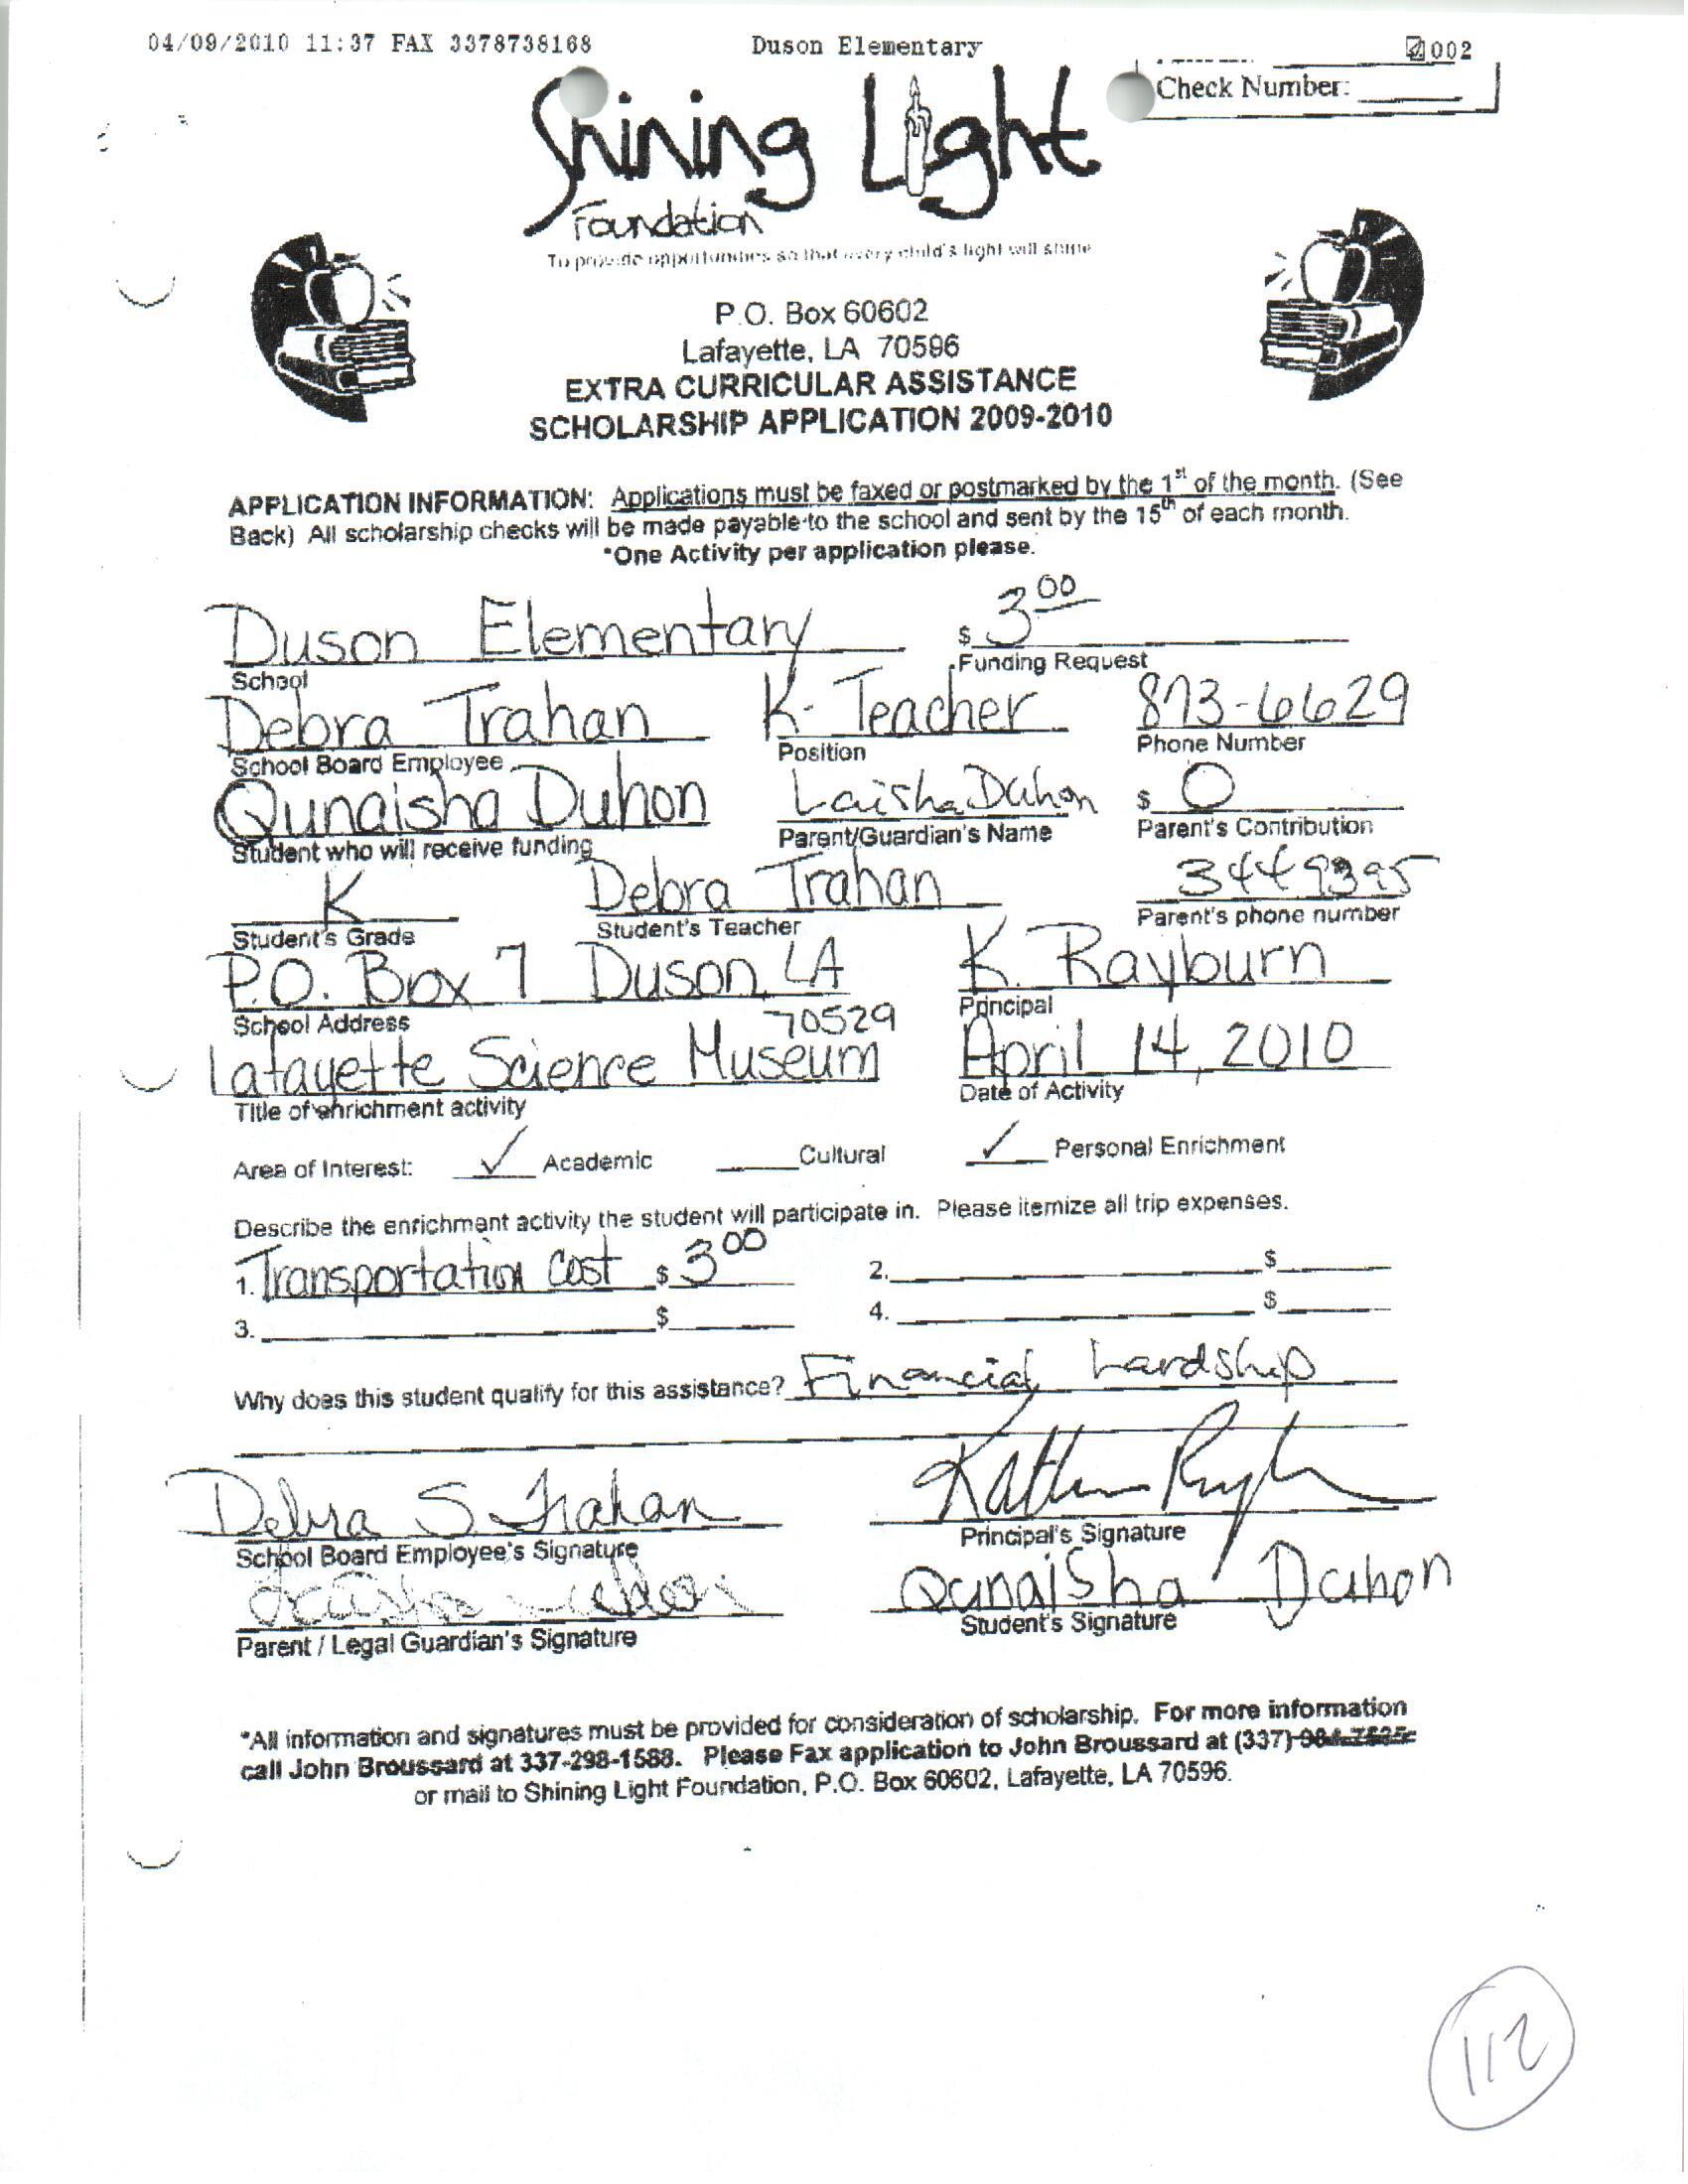 04/09/2010 11:37 FAX 3378738168 Duson Elementary 002
Check Number:
Shining Light
Foundation
To provide opportunities so that every child's light will shine
P.O. Box 60602
Lafayette, LA 70596
EXTRA CURRICULAR ASSISTANCE
SCHOLARSHIP APPLICATION 2009-2010
APPLICATION INFORMATION: Applications must be faxed or postmarked by the 1st of the month. (See
Back) All scholarship checks will be made payable to the school and sent by the 15th of each month.
*One Activity per application please.
Duson Elementary $ 3 00
School Funding Request
Debra Trahan K-Teacher 873-6629
School Board Employee Position Phone Number
Qunaisha Duhon Laisha Duhon $ 0
Student who will receive funding Parent/Guardian's Name Parent's Contribution
K Debra Trahan 3449395
Student's Grade Student's Teacher Parent's phone number
P.O. Box 7 Duson, LA K. Rayburn
School Address 70529 Principal
Lafayette Science Museum April 14, 2010
Title of enrichment activity Date of Activity
Area of Interest: ✓ Academic Cultural ✓ Personal Enrichment
Describe the enrichment activity the student will participate in. Please itemize all trip expenses.
1. Transportation Cost $ 3 00 2. $
3. $ 4. $
Why does this student qualify for this assistance? Financial hardship
Debra S. Trahan
School Board Employee's Signature Principal's Signature
Qunaisha Duhon
Parent / Legal Guardian's Signature Student's Signature
*All information and signatures must be provided for consideration of scholarship. For more information
call John Broussard at 337-298-1588. Please Fax application to John Broussard at (337)
or mail to Shining Light Foundation, P.O. Box 60602, Lafayette, LA 70596.
112